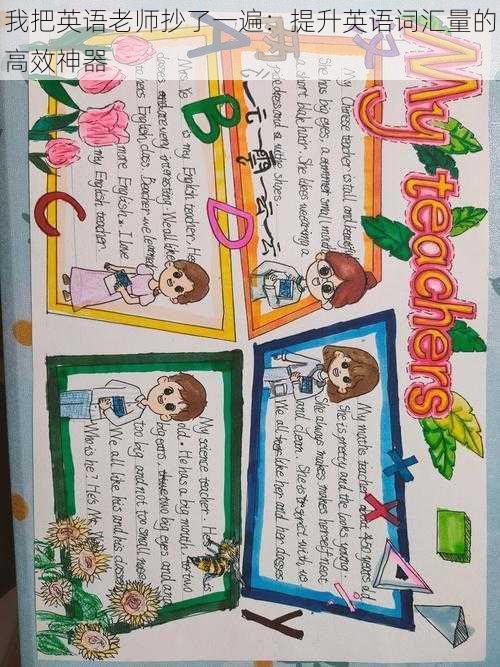 我把英语老师抄了一遍：提升英语词汇量的
高效神器
My teachers
My Chinese teacher is tall and beautiful.
She has big eyes, a small mouth
a short black hair. She likes wearing a
red dress and a white shoes.
Mrs Ye is my English teacher. Her
classes are very interesting. We all like
English class. Because we learned
more English. I love
my English teacher.
My maths teacher about 450 years old
She is pretty and she looks young.
She always makes makes herself neat
and clean. She is strict with us.
We all like her and her classes.
My science teacher. He's
old. He has a big mouth. Two
big ears, two big eyes and an
too big and not too small nose
We all like his and his classes
Who is he? He's Mr.
A
B
C
D
X
X
y